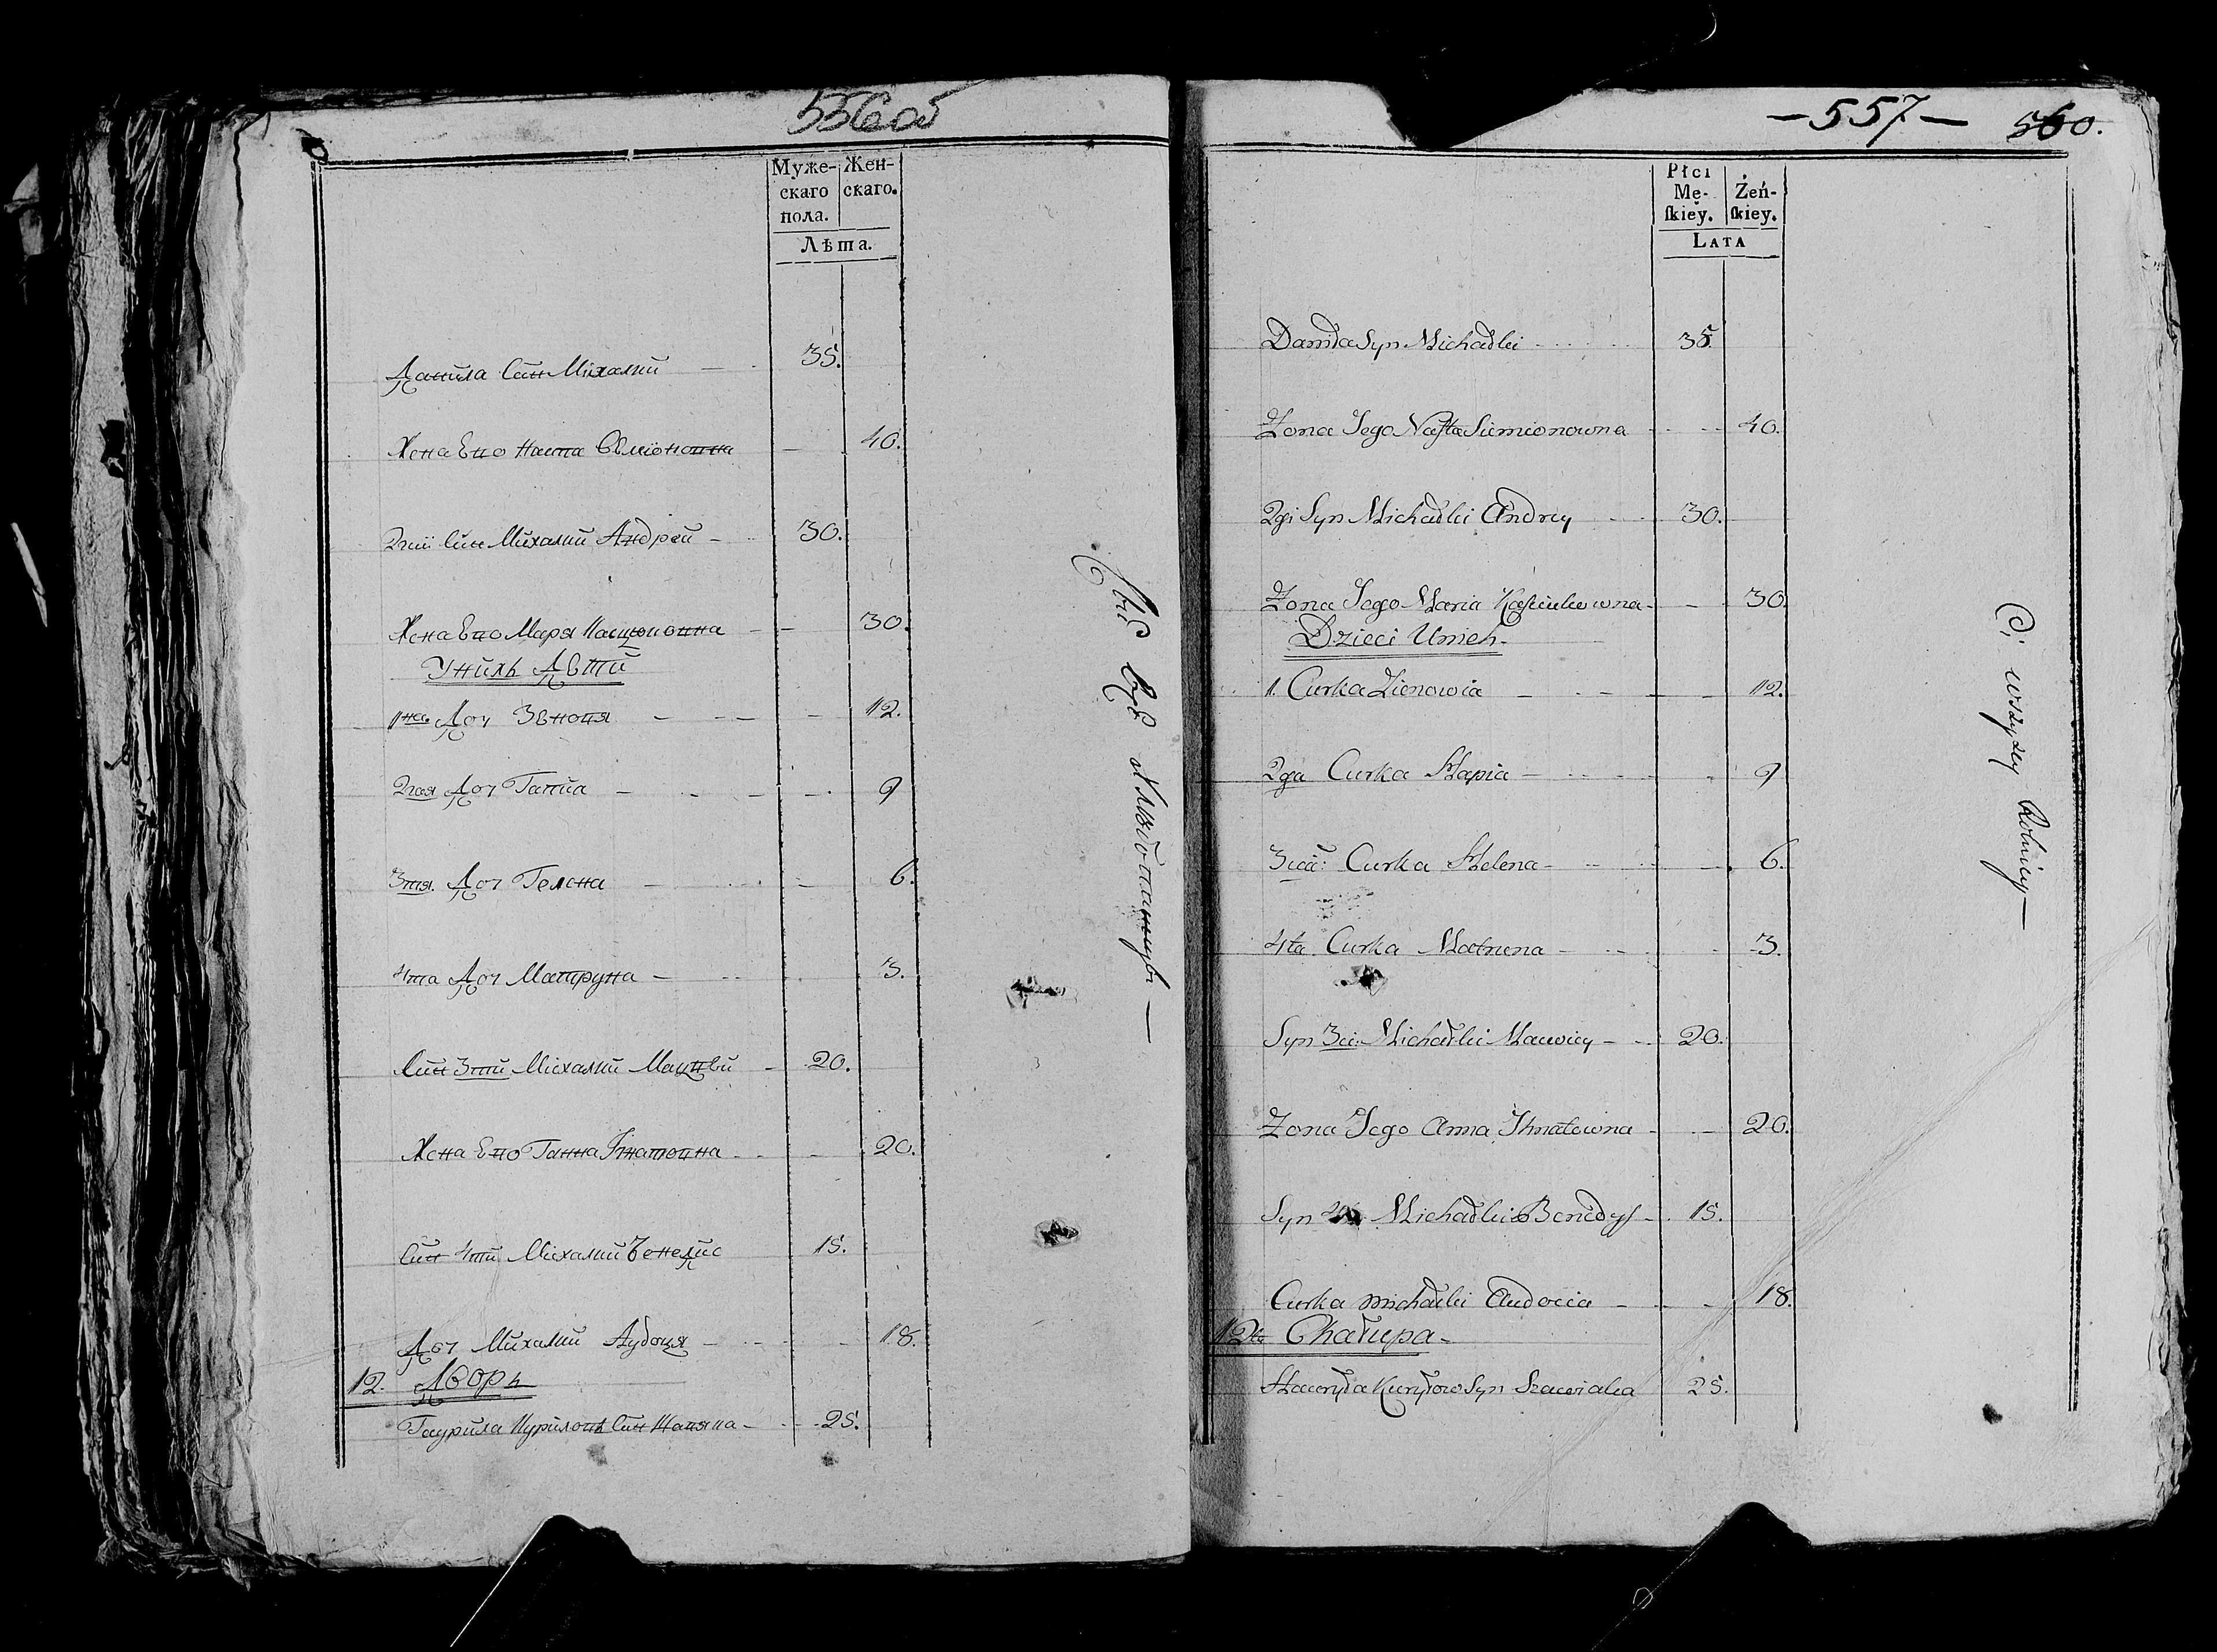 556 об
Муже-
скаго
пола.
Жен-
скаго.
Лѣта.
Данила Син Михалки 35.
Жена Его Наста Сѣмїоновна 40.
2гий Син Михалки Андрей 30.
Жена Его Маря 30.
У них Дѣти
1на Доч Зѣновя 12.
2гая Доч Гапиа 9
3тя. Доч Гелена 6.
4та Доч Матруна 3.
Син 3тий Михалки Мацѣй 20.
Жена Его Ганна Ігнатовна 20.
Син 4тий Михалки Бенедис 15.
Доч Михалки Аудоця 18.
12. Дворъ
Гаурила Курилов Син 25.
Сии Всѣ
— 557 — 560.
Płci
Mę-
skiey.
Żeń-
skiey.
LATA
Daniła Syn Michałki 35
Zona Jego Nasta Siemionowna 40.
2gi Syn Michałki Andrey 30.
Zona Jego Maria 30.
Dzieci Unich.
1. Curka Zienowia 12.
2ga Curka Hapia 9
3cia: Curka Helena 6.
4ta Curka Matruna 3.
Syn 3ci Michałki Maciey 20.
Zona Jego Anna Ihnatowna 20.
Syn Michałki Benedys 15.
Curka Michałki Audocia 18.
12ta Chałupa
Hawryła Kuryłow Syn 25.
Ci wszyscy Rolnicy—